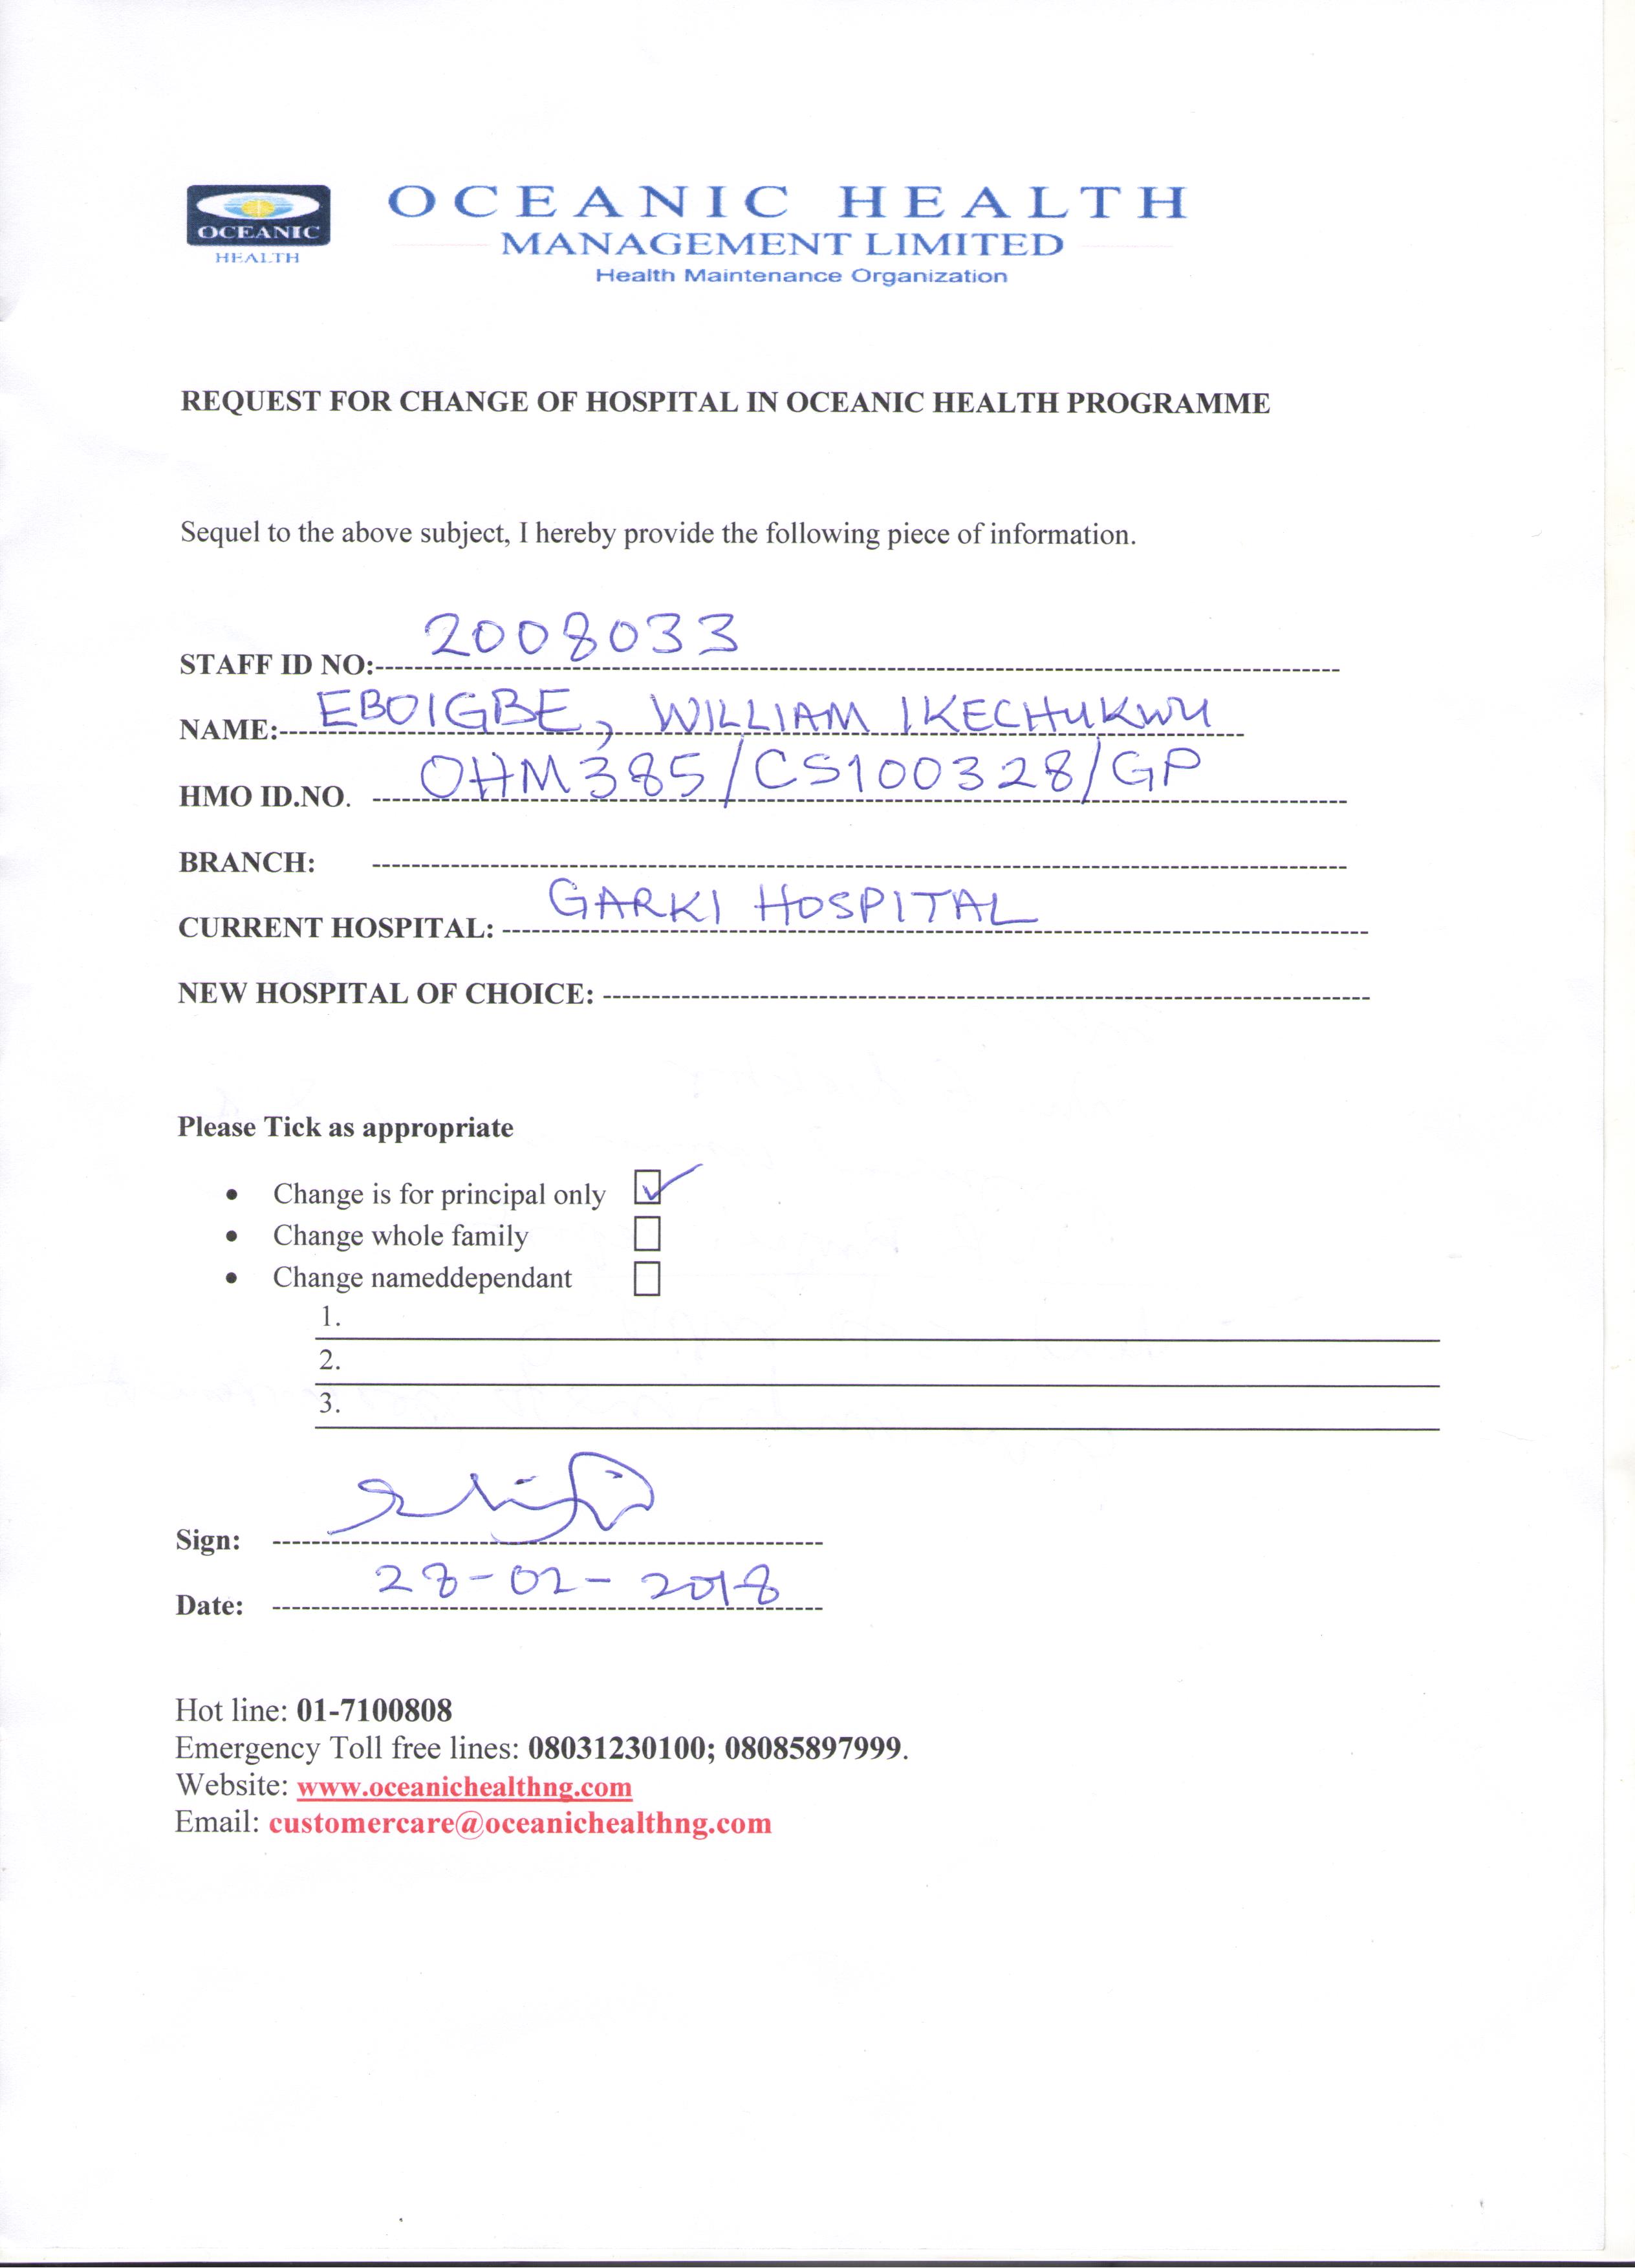 OCEANIC
HEALTH
OCEANIC HEALTH
MANAGEMENT LIMITED
Health Maintenance Organization
REQUEST FOR CHANGE OF HOSPITAL IN OCEANIC HEALTH PROGRAMME
Sequel to the above subject, I hereby provide the following piece of information.
STAFF ID NO: 2008033
NAME: EBOIGBE, WILLIAM IKECHUKWU
HMO ID.NO. OHM385/CS100328/GP
BRANCH:
CURRENT HOSPITAL: GARKI HOSPITAL
NEW HOSPITAL OF CHOICE:
Please Tick as appropriate
• Change is for principal only ✓
• Change whole family
• Change nameddependant
1.
2.
3.
Sign:
Date: 28-02-2018
Hot line: 01-7100808
Emergency Toll free lines: 08031230100; 08085897999.
Website: www.oceanichealthng.com
Email: customercare@oceanichealthng.com